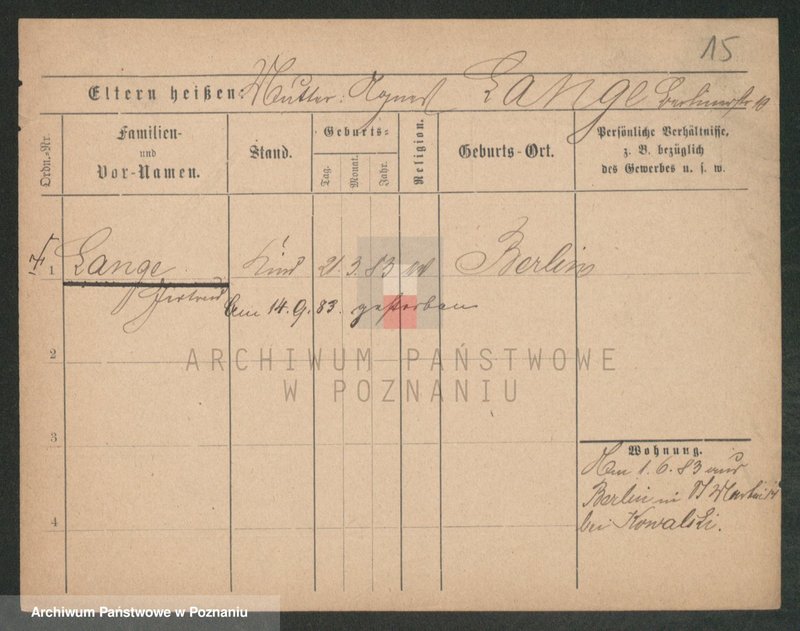 15
Eltern heißen: Mutter: Agnes Lange Berlinerstr 19
Ordn.-Nr.
Familien-
und
Vor-Namen.
Stand.
Geburts-
Tag.
Monat.
Jahr.
Religion.
Geburts-Ort.
Persönliche Verhältnisse,
z. B. bezüglich
des Gewerbes u. s. w.
1 Lange Kind 21 3 83 Berlin
Gertrud
Am 14.9.83. gestorben
2
ARCHIWUM PAŃSTWOWE
W POZNANIU
3
Wohnung.
Am 1.6.83 aus
Berlin in St Martin
bei Kowalski.
4
Archiwum Państwowe w Poznaniu